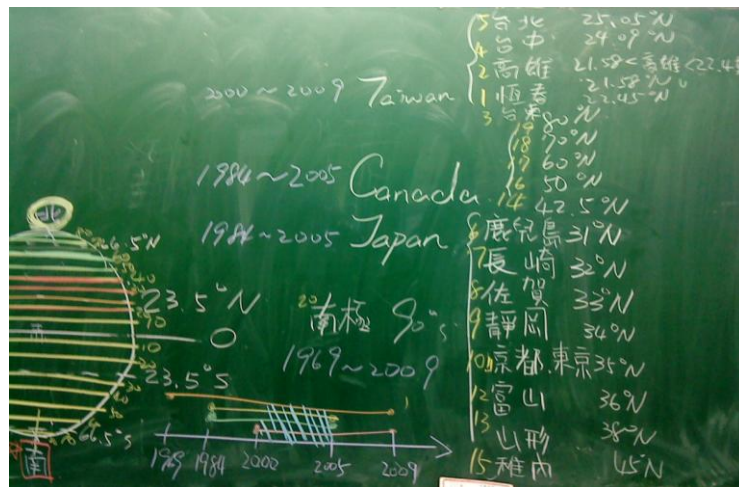 5 台北 25.05°N
4 台中 24.09°N
2 高雄 21.58<高雄<22.45
1 恆春 21.58°N
3 台東 22.45°N
2000~2009 Taiwan
19 80°N
18 70°N
17 60°N
16 50°N
14 42.5°N
1984~2005 Canada
1984~2005 Japan
6 鹿兒島 31°N
7 長崎 32°N
8 佐賀 33°N
9 靜岡 34°N
10 11 京都.東京 35°N
12 富山 36°N
13 山形 38°N
15 稚內 45°N
20 南極 90°S
1969~2009
北
66.5°N
23.5°N
0
23.5°S
66.5°S
南
1969 1984 2000 2005 2009